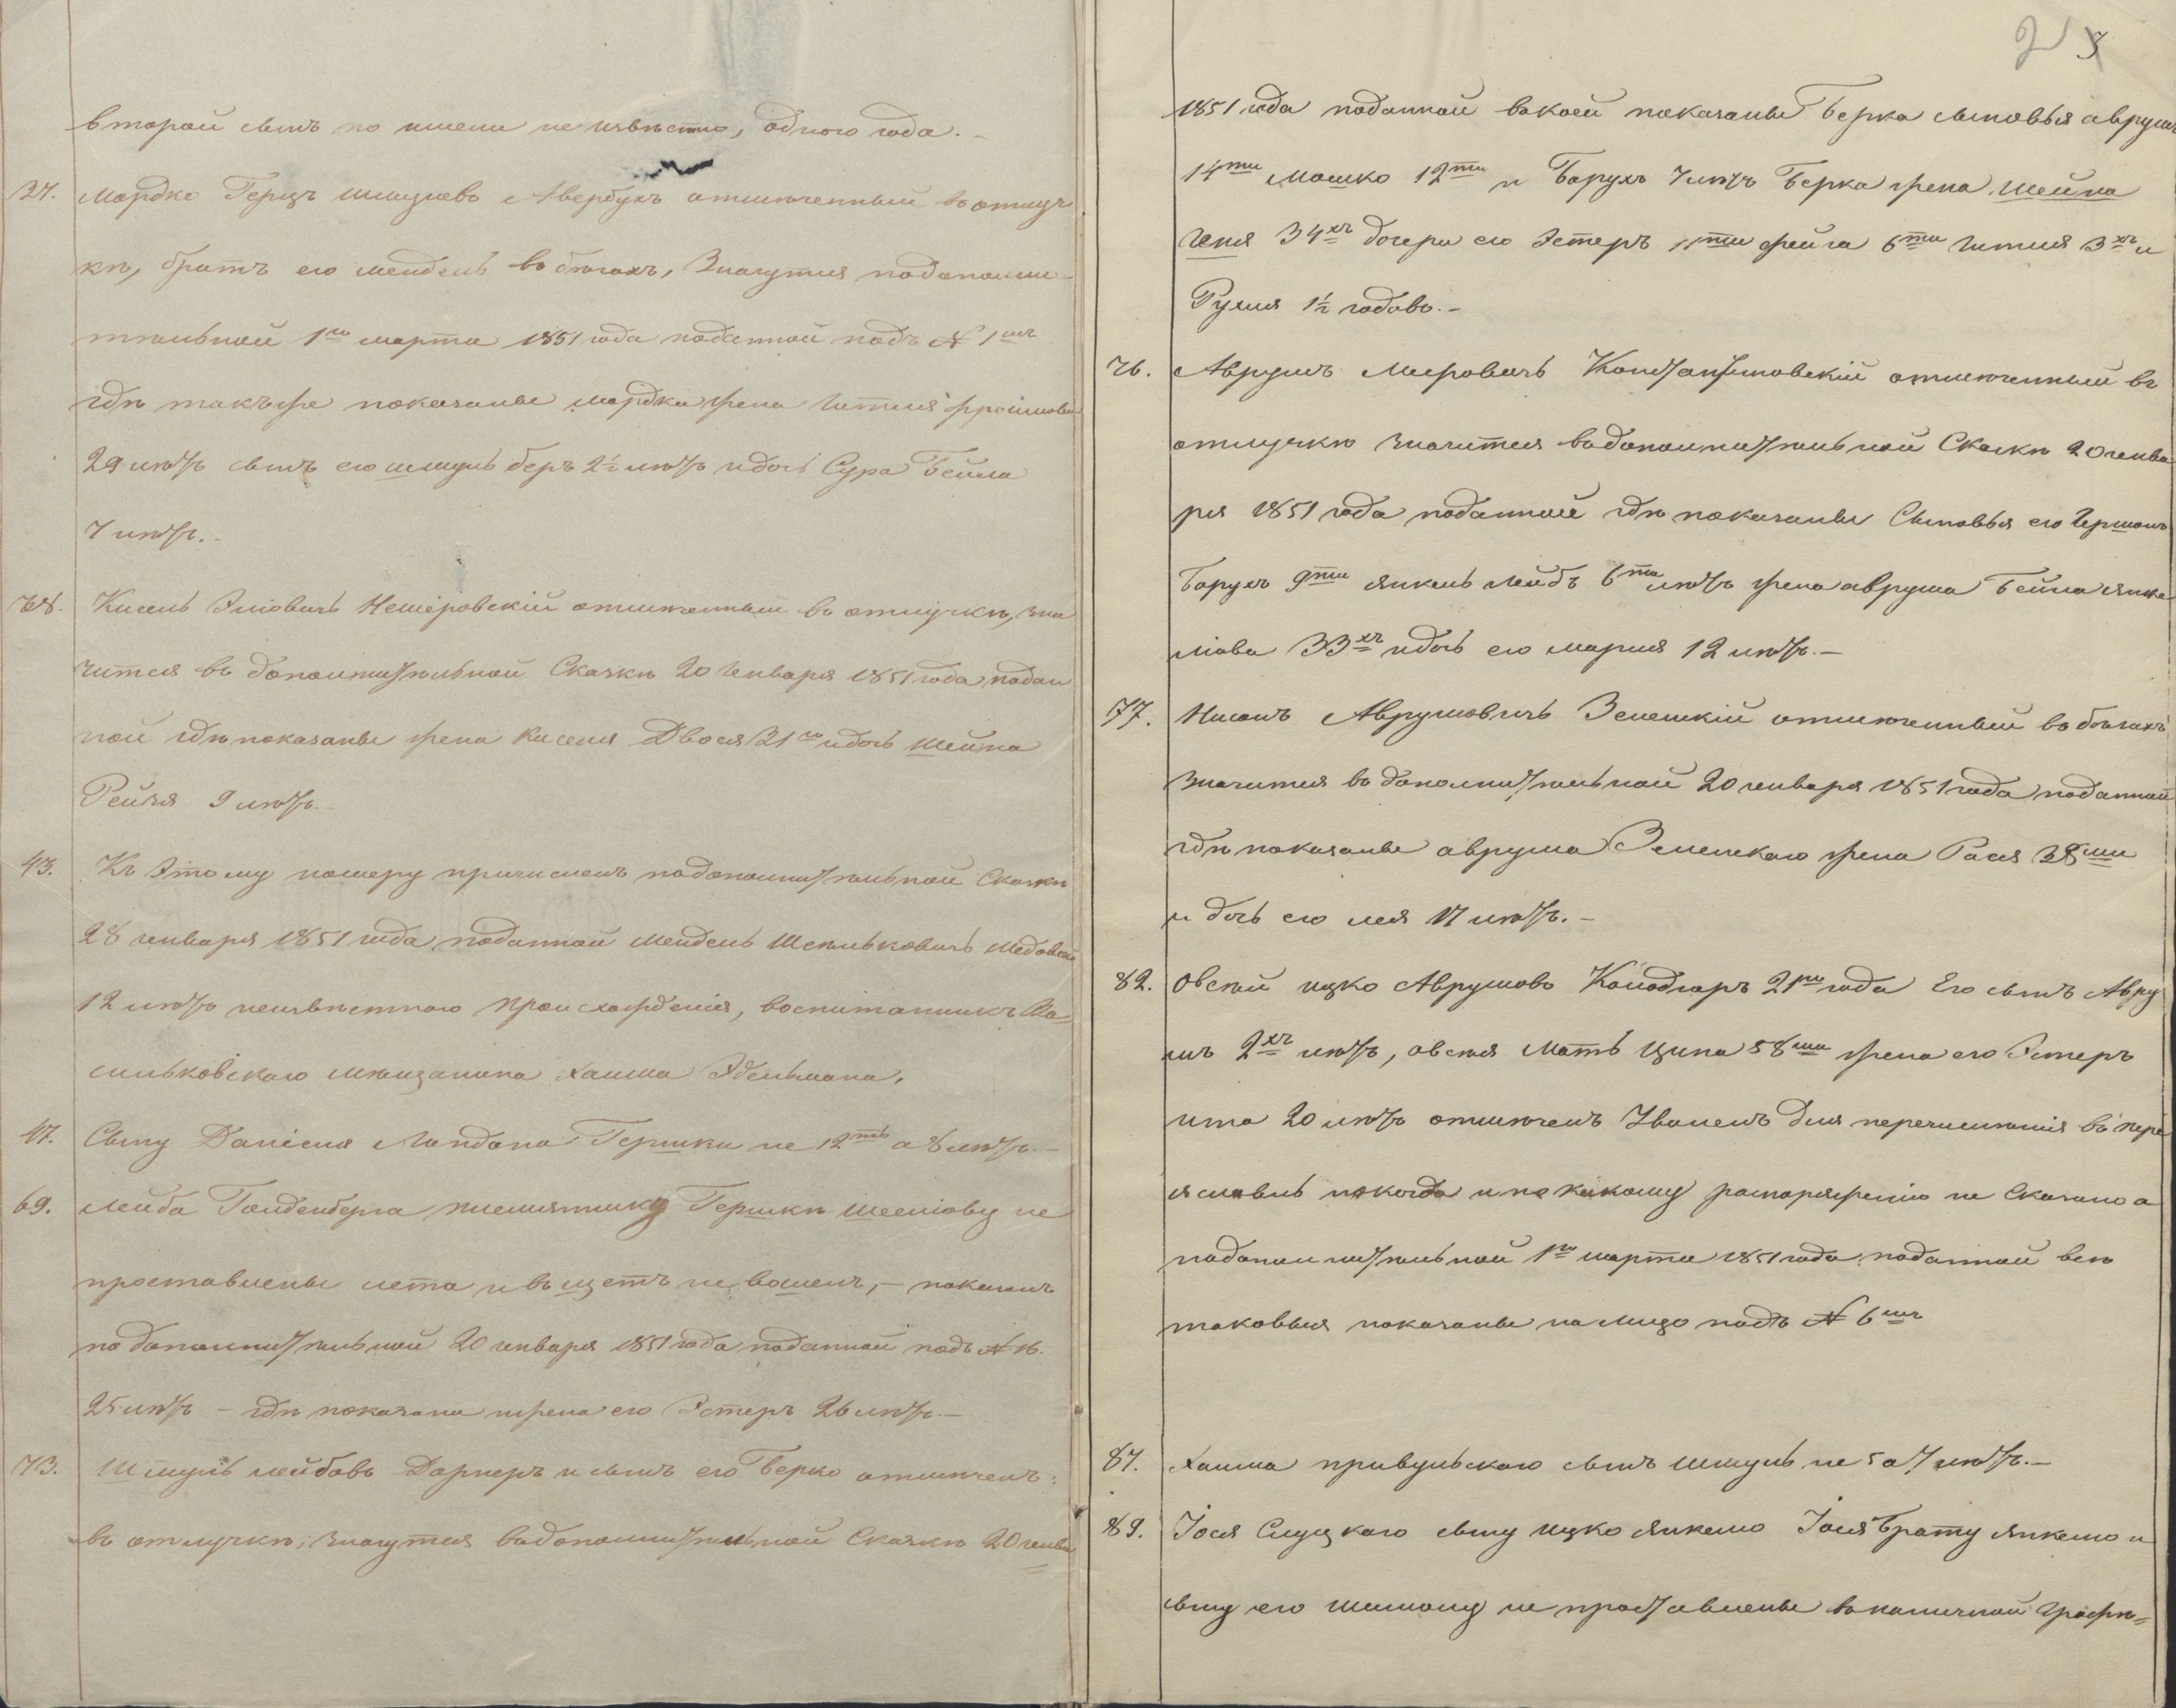 второй сынъ по имени не извѣстно, одного года. –
37. Мордко Герцъ Шмулевъ Авербухъ отмѣченный въ отлуч
кѣ, братъ его Мендель въ бѣгахъ, Значутся подополни-
тельной 1го марта 1851 года поданной подъ № 1мъ
гдѣ такъже показаны Мордка жена Гитля Фроимова
29 лѣтъ сынъ его Шмуль Беръ 2½ лѣтъ идочь Сура Бейла
7 лѣтъ. –
Кисель Эліовичъ Немѣровскій отмѣченный въ отлучкѣ, зна
чится въ дополнительной Сказкѣ 20 Генваря 1851 года подан
ной гдѣ показаны жена Киселя Двося 31го идочь Шейна
Рейзя 9 лѣтъ. –
43. Къ Этому номеру причисленъ подополнительной Сказкѣ
28 генваря 1851 года поданной Мендель Шмильковичъ
12 лѣтъ неизвѣстнаго происхожденія, воспитанникъ Ва-
сильковскаго мѣщанина Хаима Эдельмана.
47. Сыну Даніеля Ландана Гершки не 12ть а 8 лѣтъ. –
69. Лейба Голденберга племяннику Гершкѣ не
проставлены лета и въ щетъ не вошелъ, – показанъ
по дополнительной 20 генваря 1851 года поданной подъ № 16.
25 лѣтъ – гдѣ показана ижена его Эстеръ 26 лѣтъ. –
73. Шмуль Лейбовъ Дарнеръ и сынъ его Берко отмѣченъ:
въ отлучкѣ, значутся водополнительной Сказкѣ 20 генва
2 3
1851 года поданной вокоей показаны Берка сыновья Аврумъ
14ти Мошко 12ти и Борухъ 7 лѣтъ Берка жена Шейна
Геня 34хъ дочери его Эстеръ 11ти Фейга 6ти Гитля 3хъ и
Рухля 1½ годовъ. –
76. Аврумъ Меровичъ Константиновскій отмѣченный въ
отлучкѣ значится водополнительной Сказкѣ 20 генва
ря 1851 года поданной гдѣ показаны Сыновья его Гершонъ
Борухъ 9ти Янкель Лейбъ 6ти лѣтъ жена Аврума Бейла Янке
лёва 33хъ идочь его Мария 12 лѣтъ. –
77. Нисонъ Аврумовичъ Зеленскій отмѣченный въ бѣгахъ
значится въ дополнительной 20 генваря 1851 года поданной
гдѣ показаны Аврума Зеленскаго жена Рася 38ми
и дочь его Лея 17 лѣтъ. –
82. Овсѣй Ицко Аврумовъ 21го года Его сынъ Авру
мъ 2хъ лѣтъ, Овсѣя Мать Ципа 58ми жена его Эстеръ
Ита 20 лѣтъ отмѣченъ для перечисленія въ Пере
яславль покогда и по какому распоряженію не Сказано а
подополнительной 1го марта 1851 года поданной всѣ
таковыя показаны налицо подъ № 6мъ
87. Хаима привульскаго сынъ Шмуль не 5 а 7 лѣтъ. –
89. Іося Слуцкаго сыну Ицко Янкелю Іося Брату Янкелю и
сыну его не проставлены воналичной графѣ=